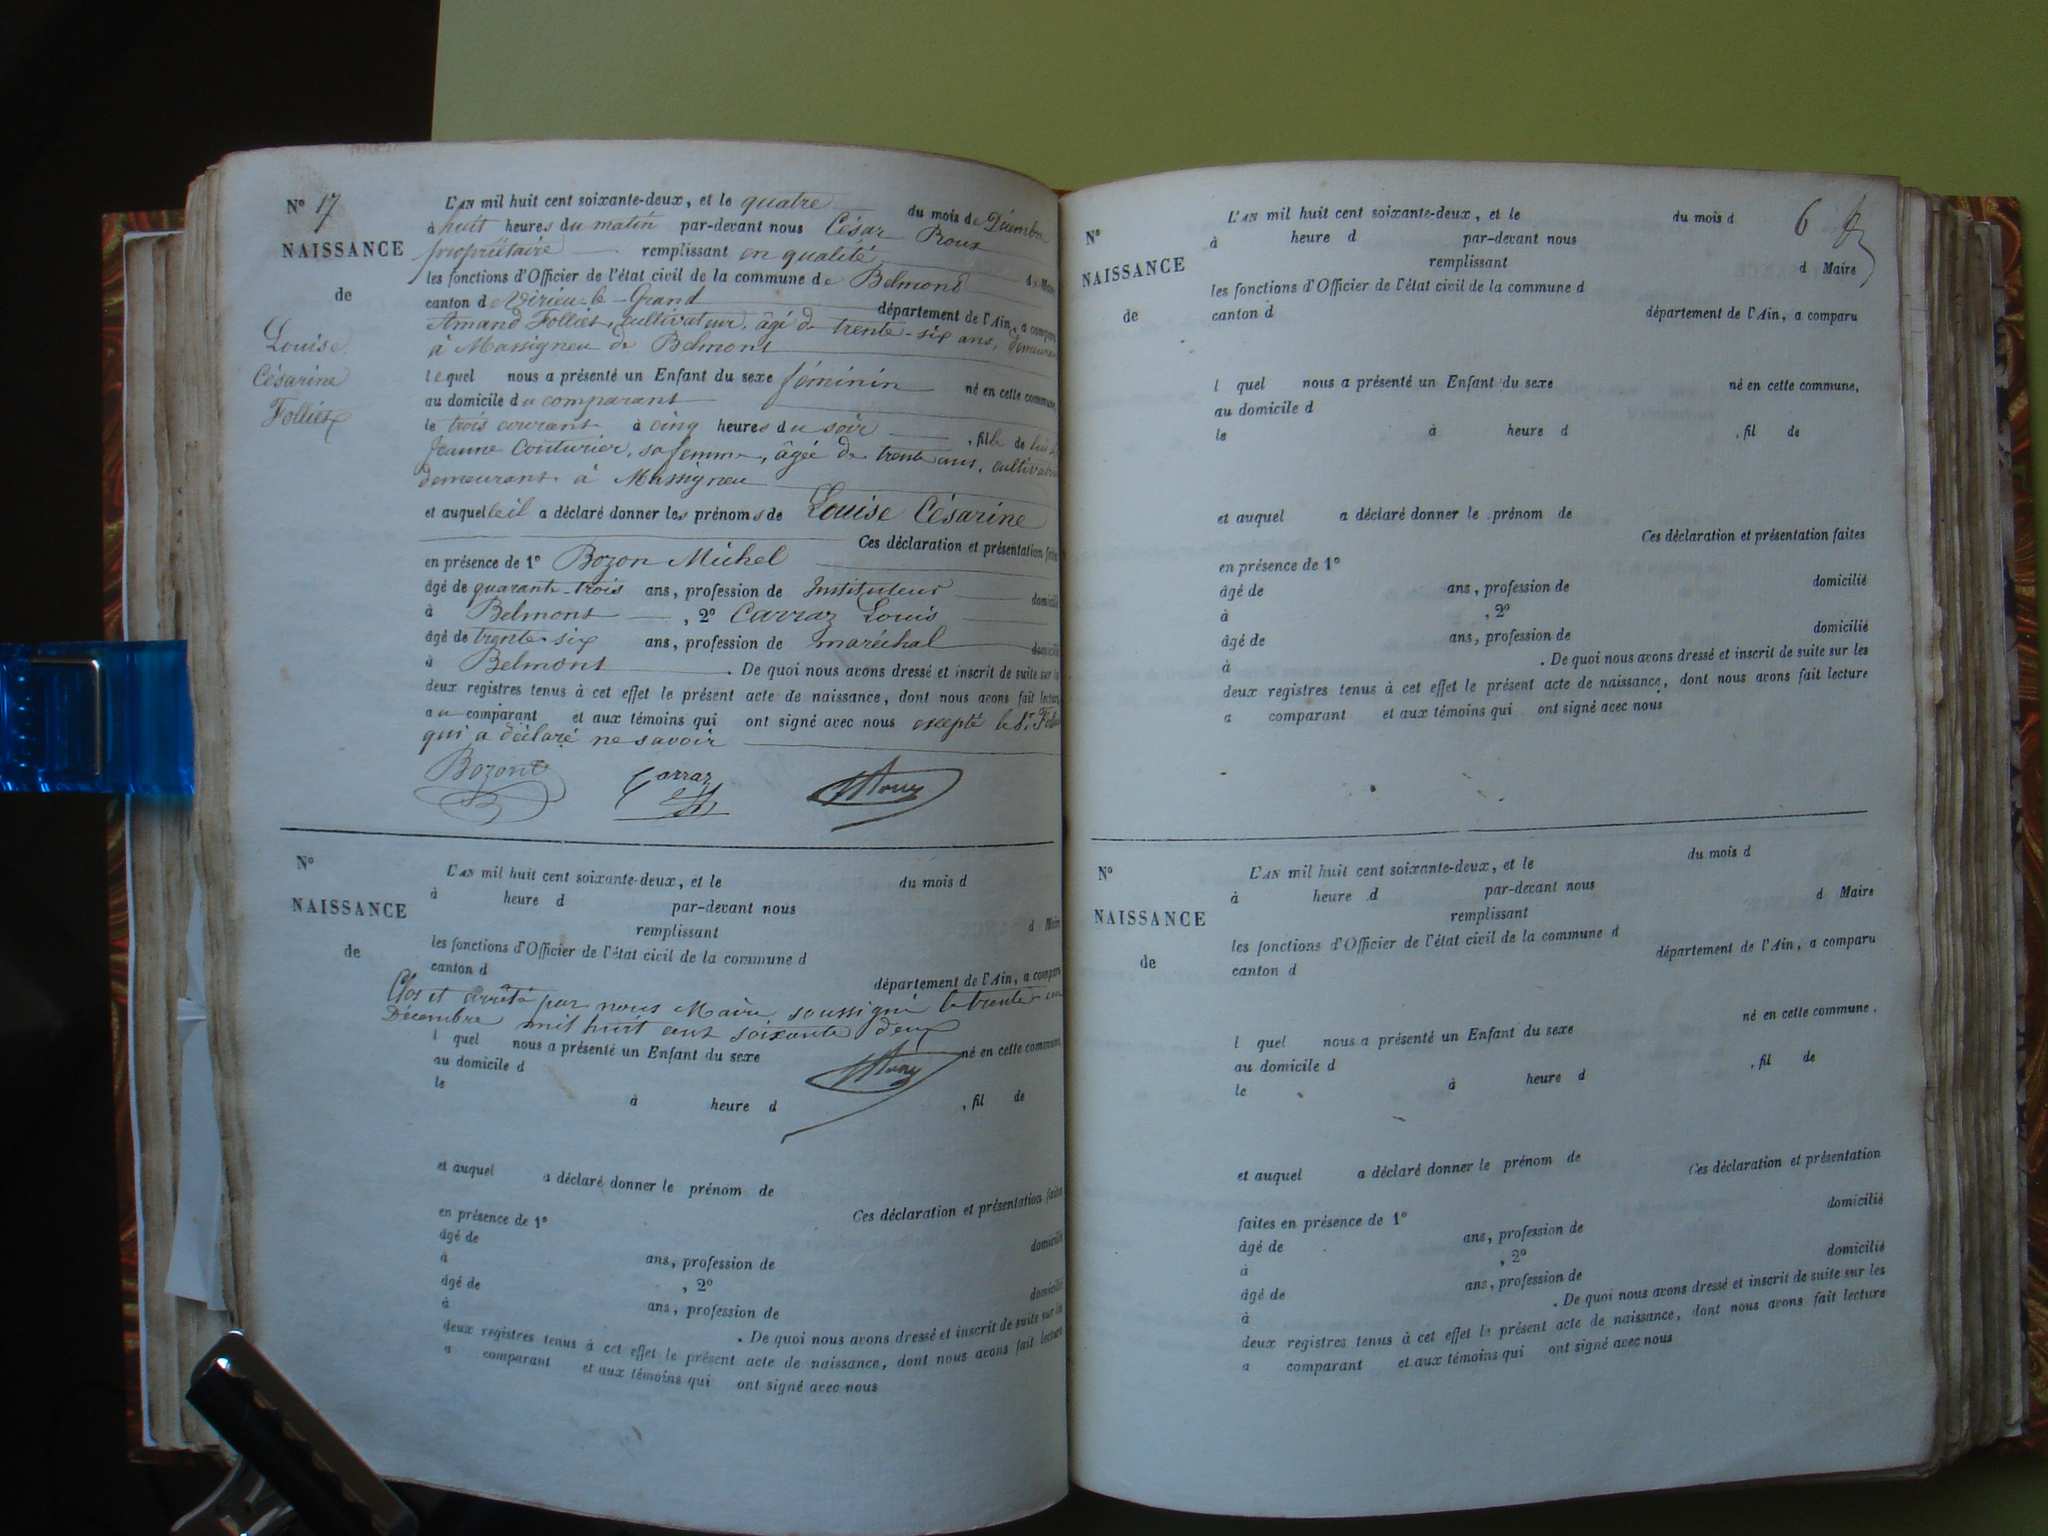 N° 17
NAISSANCE
de
Louise
Césarine
Folliex
L'AN mil huit cent soixante-deux, et le quatre du mois de Décembre
à huit heures du matin par-devant nous César Roux
propriétaire remplissant en qualité de Maire
les fonctions d'Officier de l'état civil de la commune de Belmont
canton de Virieu-le-Grand département de l'Ain, a comparu
Amand Folliex, cultivateur, âgé de trente-six ans, demeurant
à Massigneu de Belmont
lequel nous a présenté un Enfant du sexe féminin né en cette commune,
au domicile du comparant
le trois courant à cinq heures du soir , fille de lui
Jeanne Couturier, sa femme, âgée de trente ans, cultivatrice
demeurant à Massigneu
et auquel il a déclaré donner les prénoms de Louise Césarine
Ces déclaration et présentation faites
en présence de 1° Bozon Michel
âgé de quarante-trois ans, profession de Instituteur domicilié
à Belmont , 2° Carraz Louis
âgé de trente-six ans, profession de maréchal domicilié
à Belmont . De quoi nous avons dressé et inscrit de suite sur les
deux registres tenus à cet effet le présent acte de naissance, dont nous avons fait lecture
au comparant et aux témoins qui ont signé avec nous excepté le Sr. Folliex
qui a déclaré ne savoir
Bozon
Carraz
Roux
N°
NAISSANCE
de
L'AN mil huit cent soixante-deux, et le du mois d
à heure d par-devant nous
remplissant d Maire
les fonctions d'Officier de l'état civil de la commune d
canton d département de l'Ain, a comparu
Clos et arrêté par nous Maire soussigné le trente-un
Décembre mil huit cent soixante deux
l quel nous a présenté un Enfant du sexe né en cette commune,
au domicile d
Roux
le à heure d , fil de
et auquel a déclaré donner le prénom de
Ces déclaration et présentation faites
en présence de 1°
âgé de ans, profession de domicilié
à , 2°
âgé de ans, profession de domicilié
à . De quoi nous avons dressé et inscrit de suite sur les
deux registres tenus à cet effet le présent acte de naissance, dont nous avons fait lecture
a comparant et aux témoins qui ont signé avec nous
6
N°
NAISSANCE
de
L'AN mil huit cent soixante-deux, et le du mois d
à heure d par-devant nous
remplissant d Maire
les fonctions d'Officier de l'état civil de la commune d
canton d département de l'Ain, a comparu
l quel nous a présenté un Enfant du sexe né en cette commune,
au domicile d
le à heure d , fil de
et auquel a déclaré donner le prénom de
Ces déclaration et présentation faites
en présence de 1°
âgé de ans, profession de domicilié
à , 2°
âgé de ans, profession de domicilié
à . De quoi nous avons dressé et inscrit de suite sur les
deux registres tenus à cet effet le présent acte de naissance, dont nous avons fait lecture
a comparant et aux témoins qui ont signé avec nous
N°
NAISSANCE
de
L'AN mil huit cent soixante-deux, et le du mois d
à heure d par-devant nous
remplissant d Maire
les fonctions d'Officier de l'état civil de la commune d
canton d département de l'Ain, a comparu
l quel nous a présenté un Enfant du sexe né en cette commune,
au domicile d
le à heure d , fil de
et auquel a déclaré donner le prénom de
Ces déclaration et présentation
faites en présence de 1°
âgé de ans, profession de domicilié
à , 2°
âgé de ans, profession de domicilié
à . De quoi nous avons dressé et inscrit de suite sur les
deux registres tenus à cet effet le présent acte de naissance, dont nous avons fait lecture
a comparant et aux témoins qui ont signé avec nous